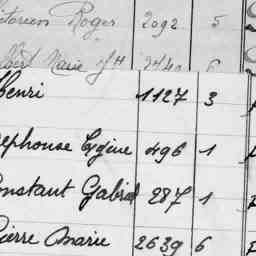 torien Roger 2092 5
Marie 2440 6
Henri 1127 3
lephonse Eugène 496 1
onstant Gabriel 287 1
ierre Marie 2639 6